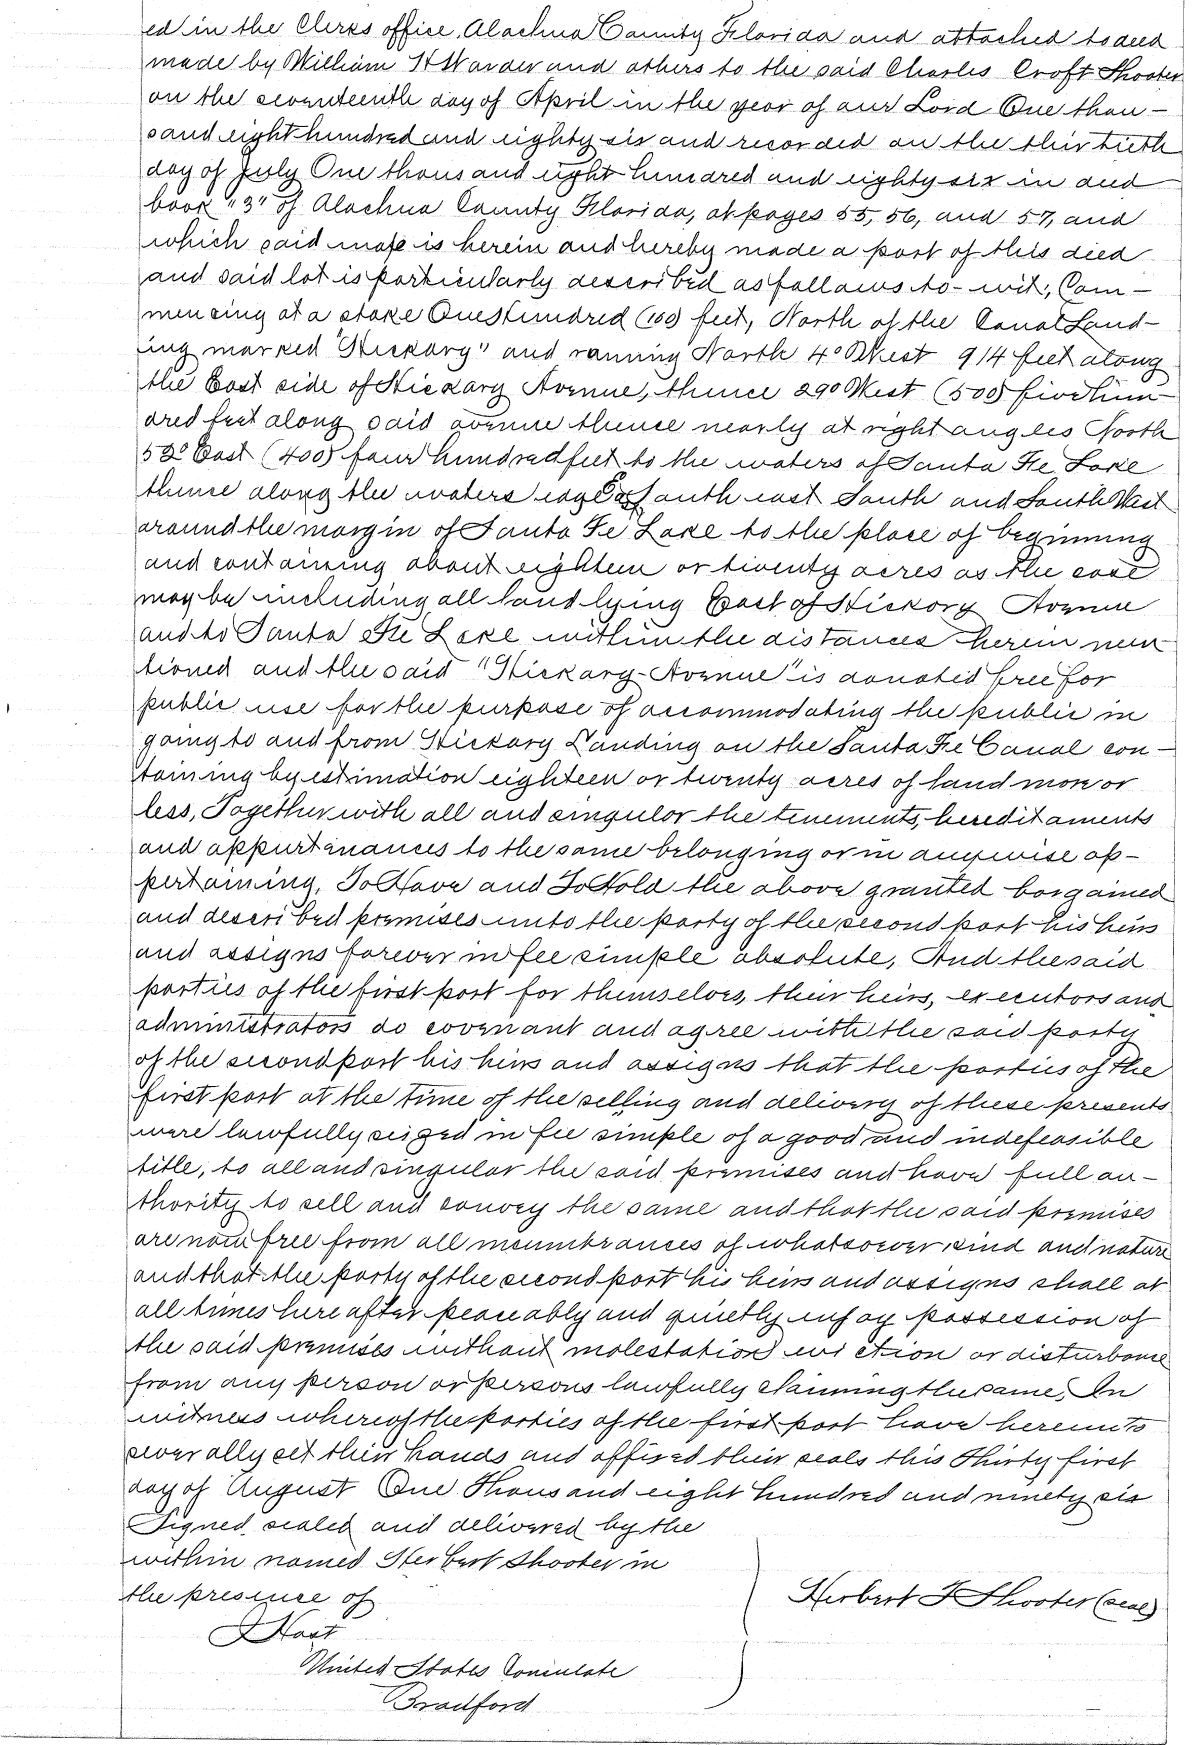 ed in the Clerks office, Alachua County Florida and attached to deed
made by William H Warder and others to the said Charles Croft Shooter
on the seventeenth day of April in the year of our Lord One thou-
sand eight hundred and eighty six and recorded on the thirtieth
day of July One thousand eight hundred and eighty six in deed
book "3" of Alachua County Florida, at pages 55, 56, and 57, and
which said map is herein and hereby made a part of this deed
and said lot is particularly described as follows to-wit; Com-
mencing at a stake One Hundred (100) feet, North of the Canal Land-
ing marked "Hickory" and running North 4° West 914 feet along
the East side of Hickory Avenue, thence 29° West (500) five hun-
dred feet along said avenue thence nearly at right angles North
52° East (400) four hundred feet to the waters of Santa Fe Lake
thence along the waters edge South east South and South West
around the margin of Santa Fe Lake to the place of beginning
and containing about eighteen or twenty acres as the case
may be including all land lying East of Hickory Avenue
and to Santa Fe Lake within the distances herein men
tioned and the said "Hickory-Avenue" is donated free for
public use for the purpose of accommodating the public in
going to and from Hickory Landing on the Santa Fe Canal con-
taining by estimation eighteen or twenty acres of land more or
less, Together with all and singular the tenements, hereditaments
and appurtenances to the same belonging or in anywise ap-
pertaining, To Have and To Hold the above granted bargained
and described premises unto the party of the second part his heirs
and assigns forever in fee simple absolute, And the said
parties of the first part for themselves, their heirs, executors and
administrators do covenant and agree with the said party
of the second part his heirs and assigns that the parties of the
first part at the time of the selling and delivery of these presents
were lawfully seized in fee simple of a good and indefeasible
title, to all and singular the said premises and have full au-
thority to sell and convey the same and that the said premises
are now free from all incumbrances of whatsoever kind and nature
and that the party of the second part his heirs and assigns shall at
all times hereafter peaceably and quietly enjoy possession of
the said premises without molestation eviction or disturbance
from any person or persons lawfully claiming the same, In
witness whereof the parties of the first part have hereunto
severally set their hands and affixed their seals this Thirty first
day of August One Thousand eight hundred and ninety six
Signed, sealed and delivered by the
within named Herbert Shooter in
the presence of
Herbert F Shooter (seal)
United States Consulate
Bradford